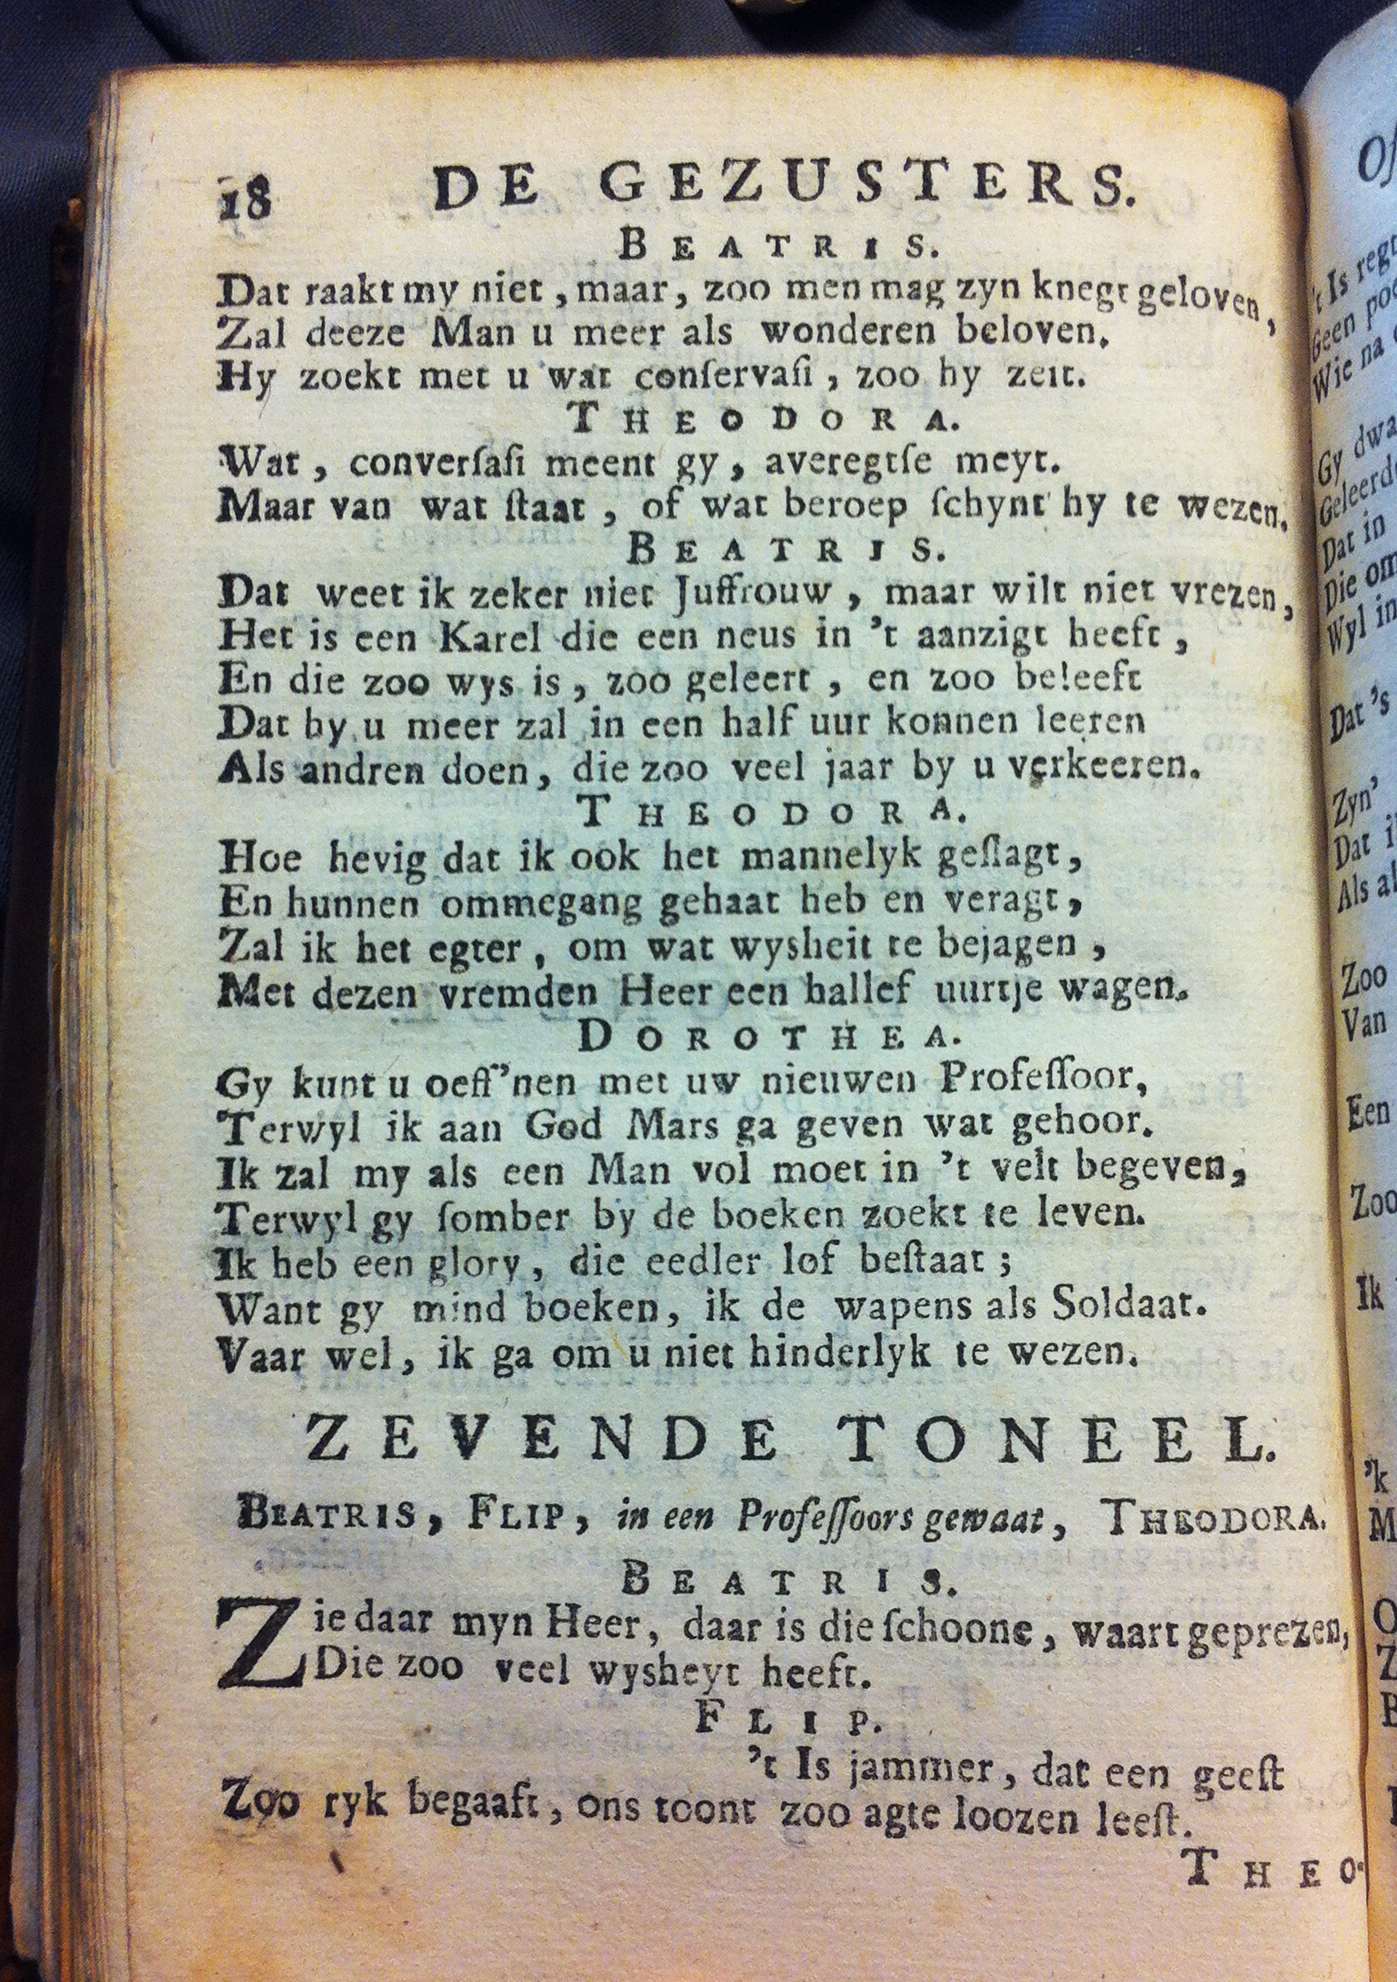 18 DE GEZUSTERS.
BEATRIS.
Dat raakt my niet, maar, zoo men mag zyn knegt geloven,
Zal deeze Man u meer als wonderen beloven.
Hy zoekt met u wat conſervaſi, zoo hy zeit.
THEODORA.
Wat, converſaſi meent gy, averegtſe meyt.
Maar van wat ſtaat, of wat beroep ſchynt hy te wezen.
BEATRIS.
Dat weet ik zeker niet Juffrouw, maar wilt niet vrezen,
Het is een Karel die een neus in 't aanzigt heeft,
En die zoo wys is, zoo geleert, en zoo beleeft
Dat hy u meer zal in een half uur konnen leeren
Als andren doen, die zoo veel jaar by u verkeeren.
THEODORA.
Hoe hevig dat ik ook het mannelyk geſlagt,
En hunnen ommegang gehaat heb en veragt,
Zal ik het egter, om wat wysheit te bejagen,
Met dezen vremden Heer een hallef uurtje wagen.
DOROTHEA.
Gy kunt u oeff'nen met uw nieuwen Profeſſoor,
Terwyl ik aan God Mars ga geven wat gehoor.
Ik zal my als een Man vol moet in 't velt begeven,
Terwyl gy ſomber by de boeken zoekt te leven.
Ik heb een glory, die eedler lof beſtaat;
Want gy mind boeken, ik de wapens als Soldaat.
Vaar wel, ik ga om u niet hinderlyk te wezen.
ZEVENDE TONEEL.
BEATRIS, FLIP, in een Profeſſoors gewaat, THEODORA.
BEATRIS.
Zie daar myn Heer, daar is die ſchoone, waart geprezen,
Die zoo veel wysheyt heeft.
FLIP.
't Is jammer, dat een geeſt
Zoo ryk begaaft, ons toont zoo agte loozen leeſt.
THEO-
't Is
Geen
Wie na
Gy
Geleerd
Dat in
Die om
Wyl in
Dat 's
Zyn'
Dat
Als
Zoo
Van
Een
Zoo
Ik
'k